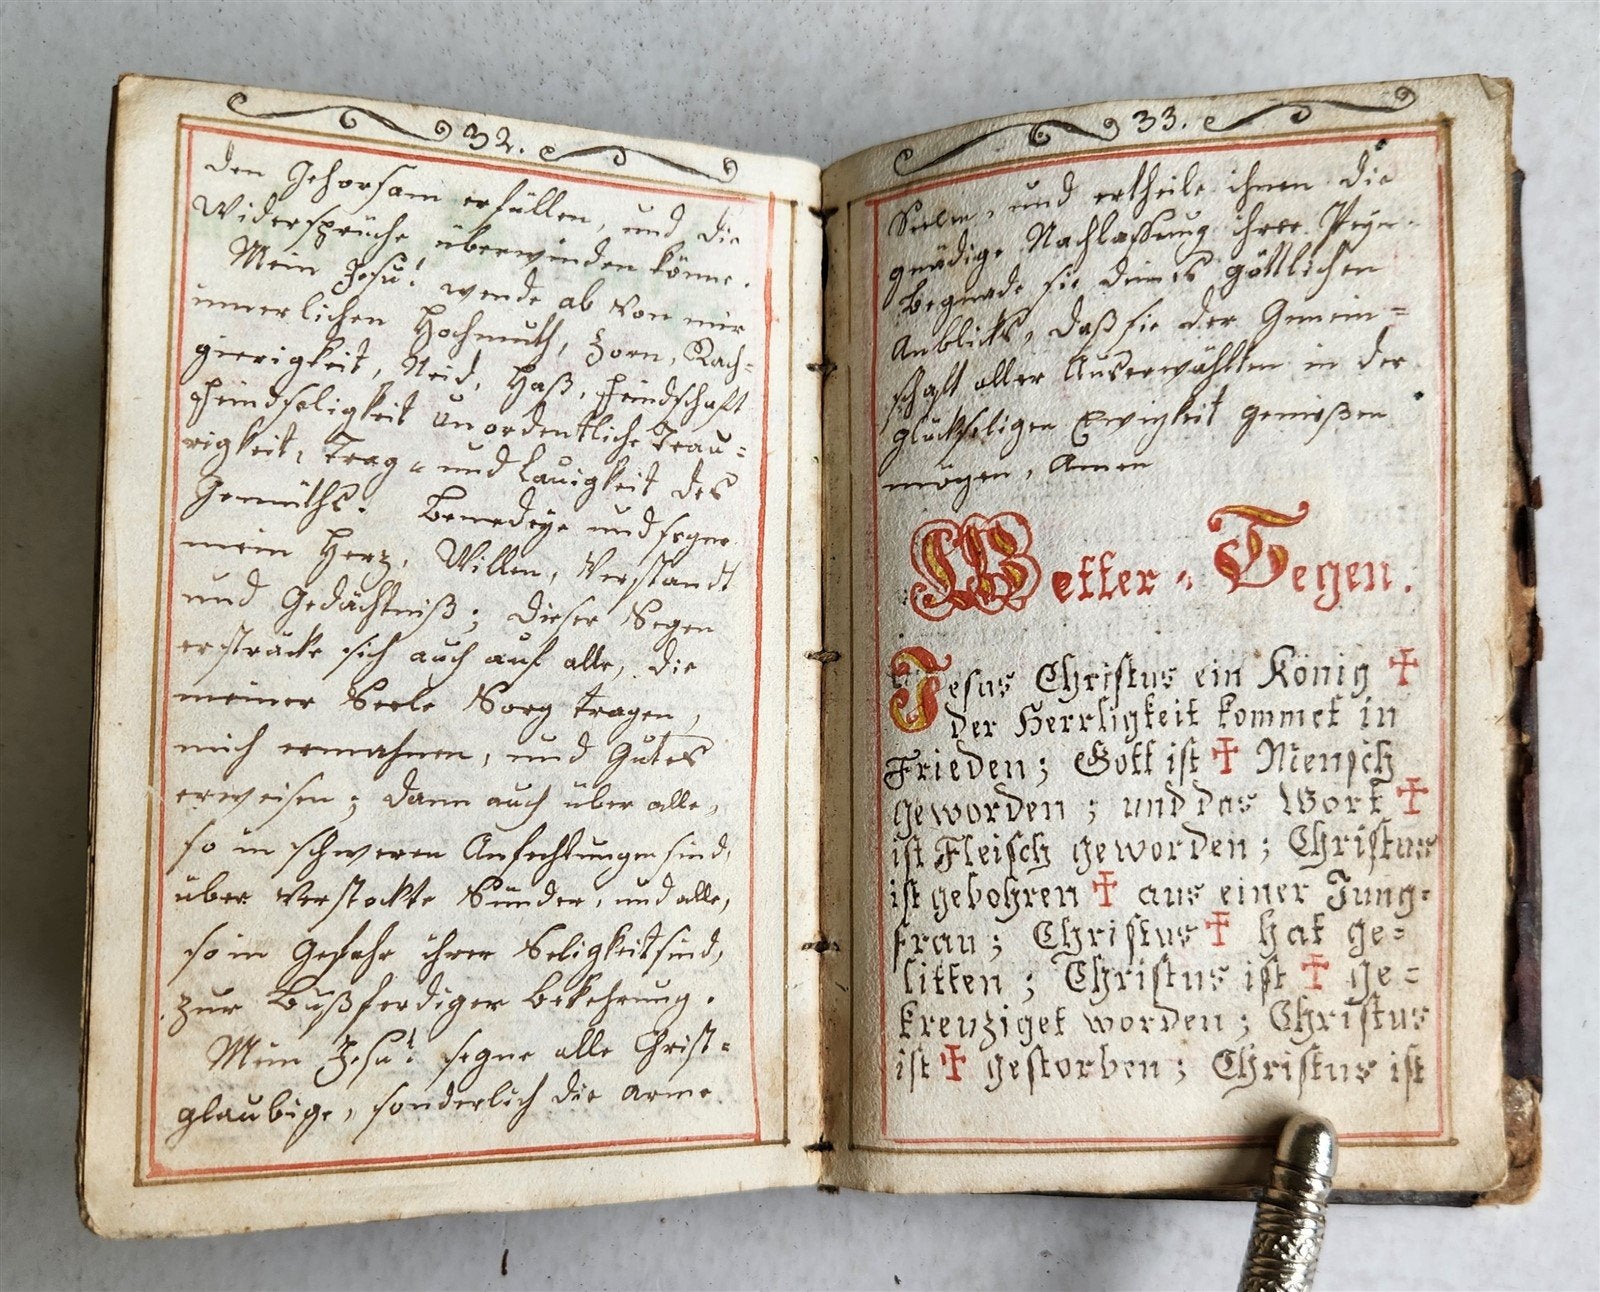 32.
den Gehorsam erfüllen, und die
Widersprüche überwinden könne.
Mein Jesu! wende ab von mir
innerlichen Hochmuth, Zorn, Rach=
gierigkeit, Neid, Haß, Feindschaft
Feindseligkeit unordentliche Trau=
rigkeit, Trag= und Lauigkeit des
Gemüths. Benedeye und segne
mein Herz, Willen, Verstandt
und Gedächtniß; dieser Segen
ersträcke sich auch auf alle, die
meiner Seele Sorg tragen,
mich ermahnen, und Gutes
erweisen; dann auch über alle,
so in schweren Anfechtungen sind,
über verstockte Sünder, und alle,
so in Gefahr ihrer Seligkeit sind,
zur Bußferdiger Bekehrung.
Mein Jesu! segne alle Christ=
glaubige, sonderlich die arme
33.
Seelen, und ertheile ihnen die
gnädige Nachlassung ihrer Peyn.
Begnade sie deines göttlichen
Anblicks, daß sie der Gemein=
schaft aller Auserwählten in der
glückseligen Ewigkeit genießen
mögen, Amen
Wetter=Segen.
Jesus Christus ein König ✝
der Herrligkeit kommet in
Frieden; Gott ist ✝ Mensch
geworden; und das Wort ✝
ist Fleisch geworden; Christus
ist gebohren ✝ aus einer Jung=
frau; Christus ✝ hat ge=
litten; Christus ist ✝ ge=
kreuziget worden; Christus
ist ✝ gestorben; Christus ist